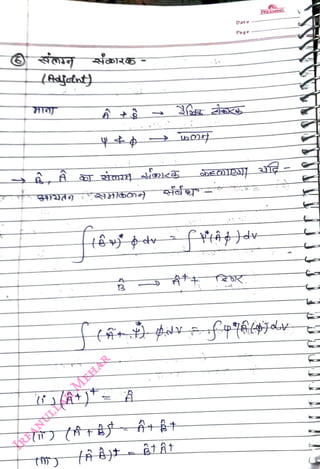 Date
Page
⑥ संलग्न संकारक -
(Adjoint)
माना
Â + B̂ → रैखिक संकारक
ψ + ϕ → फलन
→ B̂, Â का संलग्न संकारक कहलाएगा यदि -
आयतन समाकलन संबंध -
∫(B̂ψ)* ϕ dv = ∫ψ*(Âϕ) dv
B̂ → Â†
∫(Â† ψ)* ϕ dv = ∫ψ* Â(ϕ) dv
(i) (Â†)† = Â
(ii) (Â + B̂)† = Â† + B̂†
(iii) (Â B̂)† = B̂† Â†
IRFANULLAH MEHAR